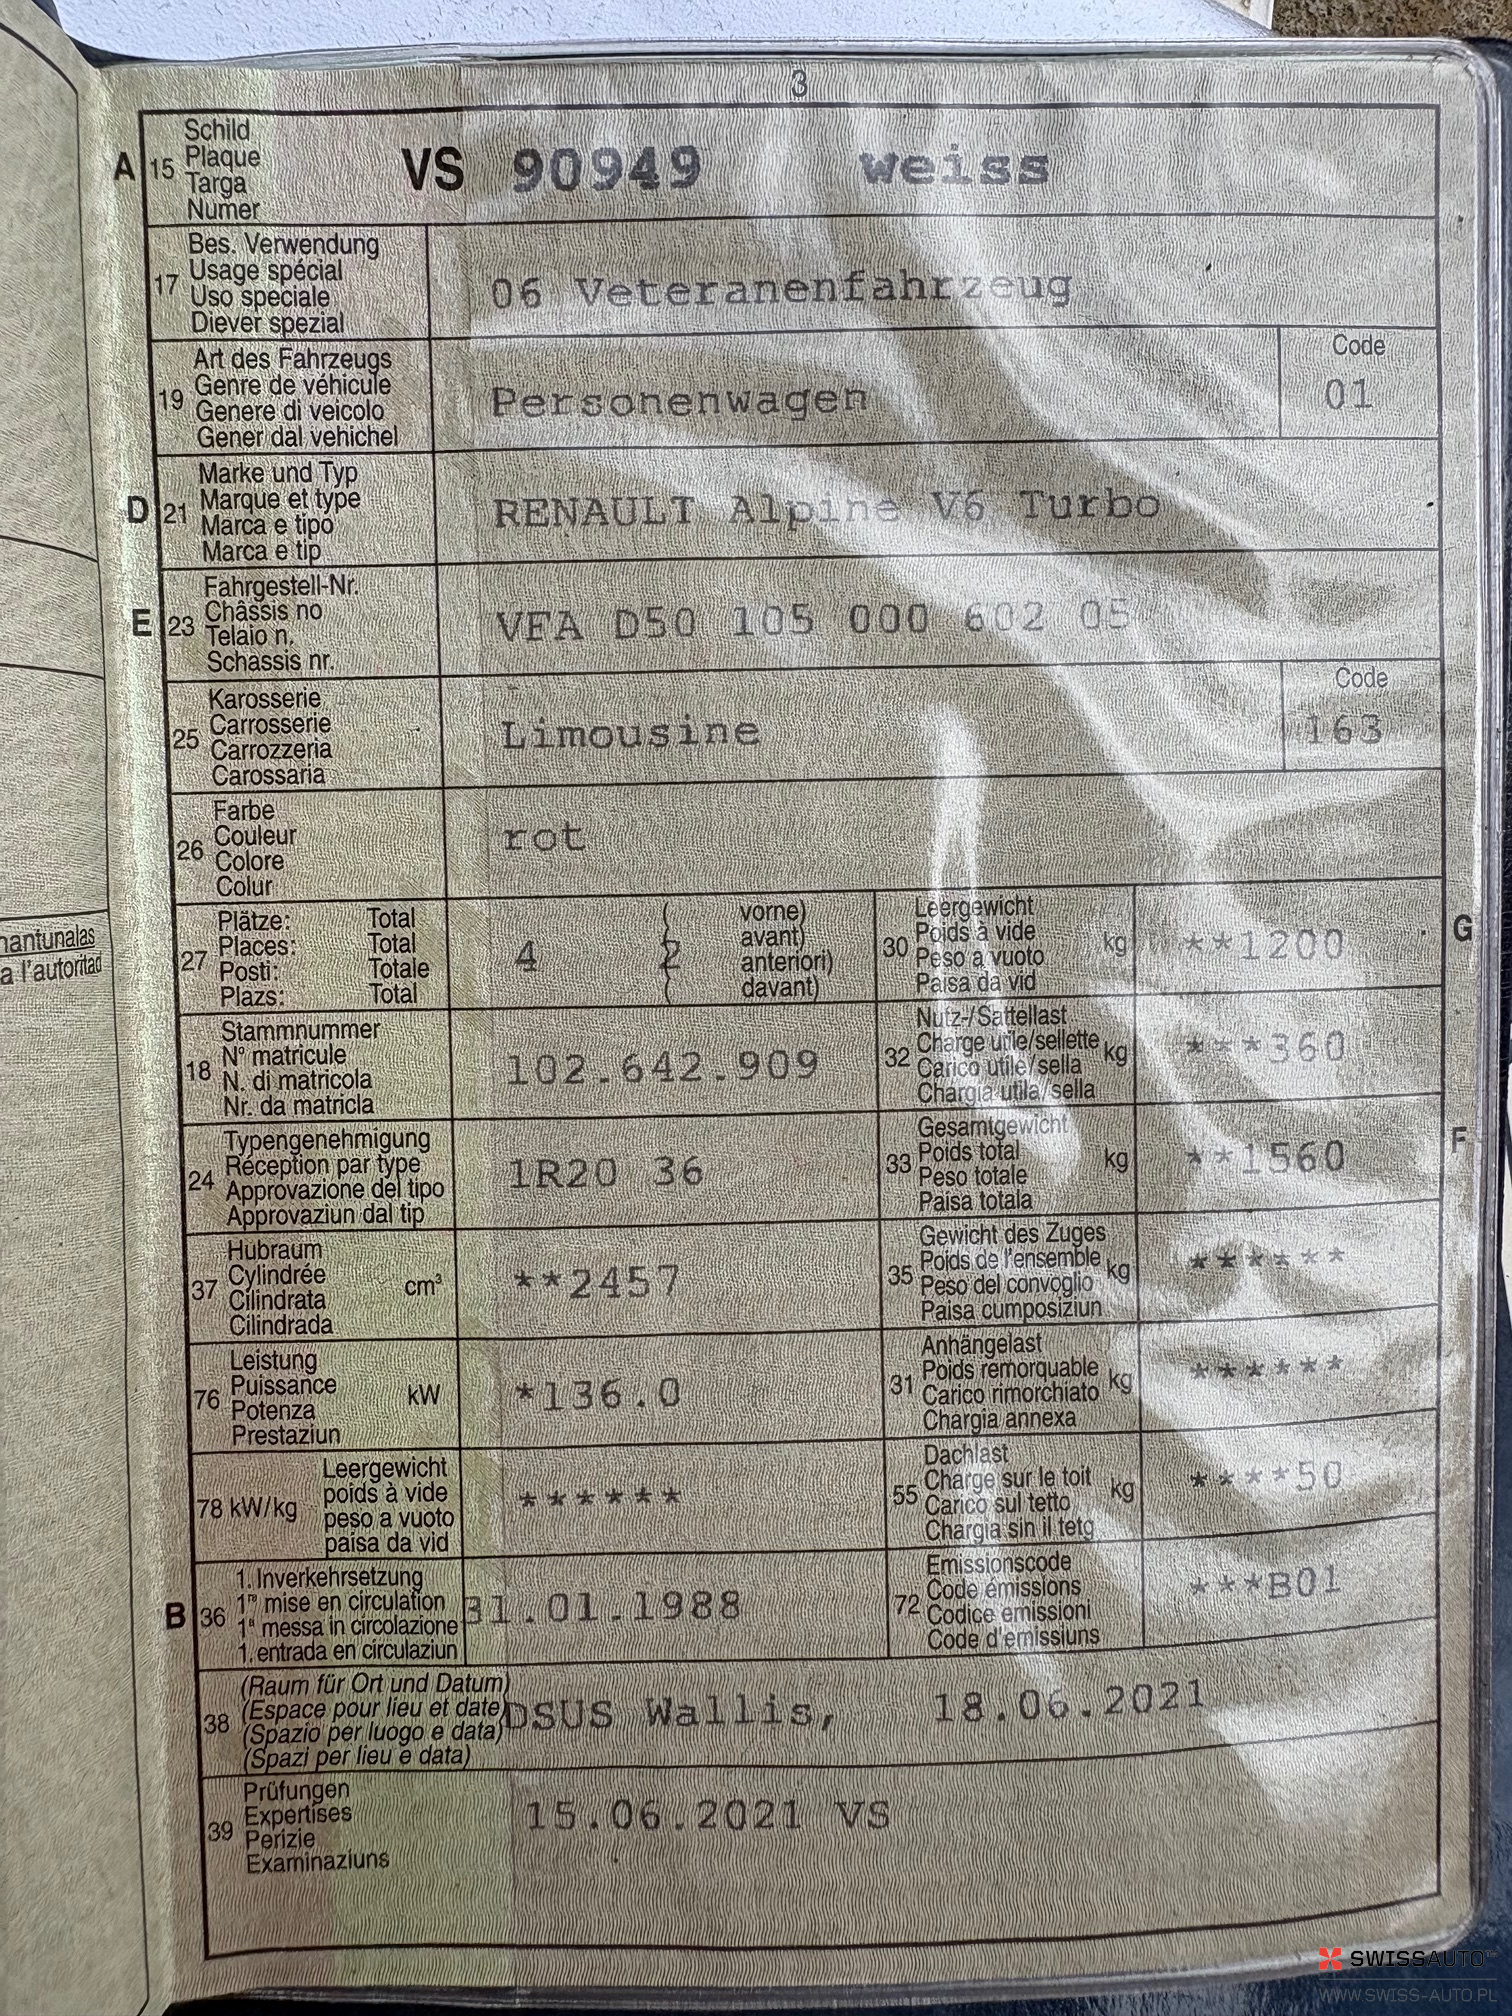 3
A 15 Schild
Plaque
Targa
Numer
VS 90949 weiss
17 Bes. Verwendung
Usage spécial
Uso speciale
Diever spezial
06 Veteranenfahrzeug
19 Art des Fahrzeugs
Genre de véhicule
Genere di veicolo
Gener dal vehichel
Personenwagen
Code
01
D 21 Marke und Typ
Marque et type
Marca e tipo
Marca e tip
RENAULT Alpine V6 Turbo
E 23 Fahrgestell-Nr.
Châssis no
Telaio n.
Schassis nr.
VFA D50 105 000 602 05
25 Karosserie
Carrosserie
Carrozzeria
Carossaria
Limousine
Code
163
26 Farbe
Couleur
Colore
Colur
rot
27 Plätze: Total
Places: Total
Posti: Totale
Plazs: Total
4 ( 2 vorne)
avant)
anteriori)
davant)
30 Leergewicht
Poids à vide
Peso a vuoto
Paisa da vid
kg **1200
G
nantunalas
a l'autoritad
18 Stammnummer
N° matricule
N. di matricola
Nr. da matricla
102.642.909
32 Nutz-/Sattellast
Charge utile/sellette
Carico utile/sella
Chargia utila/sella
kg ***360
24 Typengenehmigung
Réception par type
Approvazione del tipo
Approvaziun dal tip
1R20 36
33 Gesamtgewicht
Poids total
Peso totale
Paisa totala
kg **1560
F
37 Hubraum
Cylindrée
Cilindrata
Cilindrada
cm³ **2457
35 Gewicht des Zuges
Poids de l'ensemble
Peso del convoglio
Paisa cumposiziun
kg ******
76 Leistung
Puissance
Potenza
Prestaziun
kW *136.0
31 Anhängelast
Poids remorquable
Carico rimorchiato
Chargia annexa
kg ******
78 kW/kg Leergewicht
poids à vide
peso a vuoto
paisa da vid
******
55 Dachlast
Charge sur le toit
Carico sul tetto
Chargia sin il tetg
kg ****50
B 36 1. Inverkehrsetzung
1re mise en circulation
1a messa in circolazione
1. entrada en circulaziun
31.01.1988
72 Emissionscode
Code émissions
Codice emissioni
Code d'emissiuns
***B01
38 (Raum für Ort und Datum)
(Espace pour lieu et date)
(Spazio per luogo e data)
(Spazi per lieu e data)
DSUS Wallis, 18.06.2021
39 Prüfungen
Expertises
Perizie
Examinaziuns
15.06.2021 VS
SWISSAUTO
WWW.SWISS-AUTO.PL